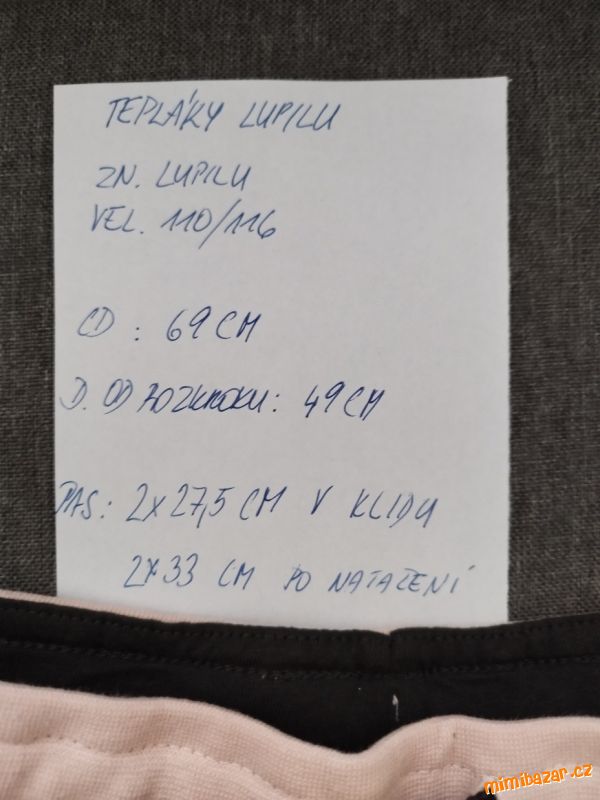 TEPLÁKY LUPILU
ZN. LUPILU
VEL. 110/116
CD : 69 CM
D. OD ROZKROKU: 49 CM
PAS: 2x27,5 CM V KLIDU
2x33 CM PO NATAŽENÍ
mimibazar.cz